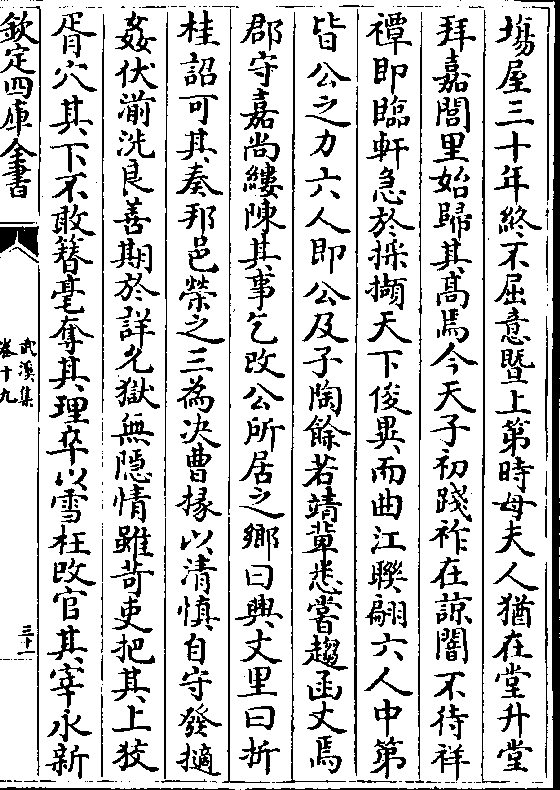 塲屋三十年終不屈意暨上第時母夫人猶在堂升堂
拜嘉閭里始歸其髙焉今天子初踐祚在諒闇不待祥
禫即臨軒急於採擷天下俊異而曲江聨翩六人中第
皆公之力六人即公及子陶餘若靖軰悉嘗趨函丈焉
郡守嘉尚縷陳其事乞改公所居之鄉曰興文里曰折
桂詔可其奏邦邑榮之三為决曹掾以清慎自守發擿
姦伏湔洗良善期於詳允獄無隠情雖苛吏把其上狡
胥穴其下不敢簪毫奪其理卒以雪枉改官其宰永新
欽定四庫全書
武溪集
卷十九
三十